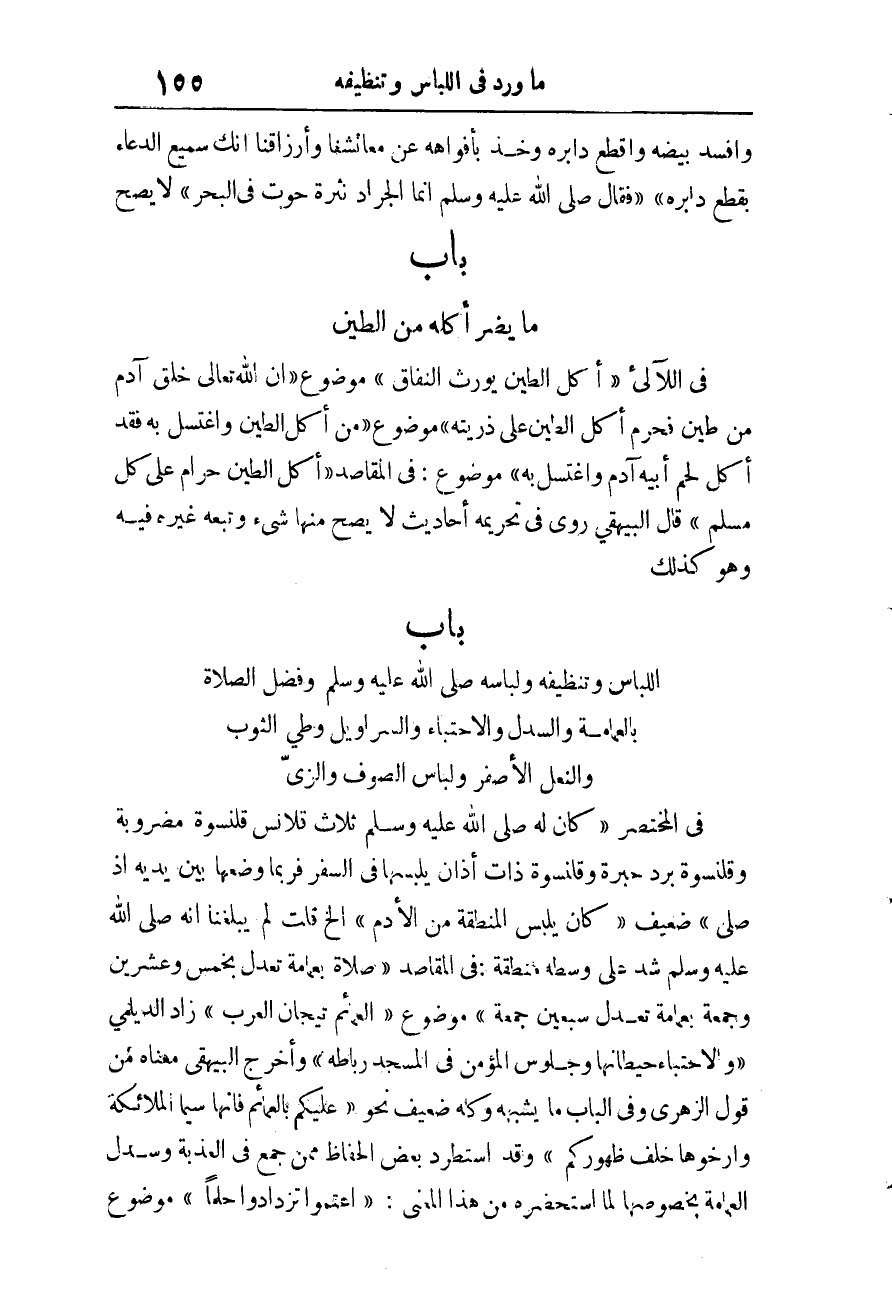 ما ورد فى اللباس وتنظيفه ١٥٥
وافسد بيضه واقطع دابره وخـذ بأفواهه عن معائشنا وأرزاقنا انك سميع الدعاء
بقطع دابره» «فقال صلى الله عليه وسلم انما الجراد نثرة حوت فى البحر» لا يصح
باب
ما يضر أكله من الطين
فى اللآلىٔ « أكل الطين يورث النفاق » موضوع «ان الله تعالى خلق آدم
من طين فحرم أكل الطين على ذريته» موضوع «من أكل الطين واغتسل به فقد
أكل لحم أبيه آدم واغتسل به» موضوع : فى المقاصد «أكل الطين حرام على كل
مسلم » قال البيهقي روى فى تحريمه أحاديث لا يصح منها شىء وتبعه غيره فيـه
وهو كذلك
باب
اللباس وتنظيفه ولباسه صلى الله عليه وسلم وفضل الصلاة
بالعمامـة والسدل والاحتباء والسراويل وطي الثوب
والنعل الأصفر ولباس الصوف والزىّ
فى المختصر « كان له صلى الله عليه وسـلم ثلاث قلانس قلنسوة مضروبة
وقلنسوة برد حبرة وقلنسوة ذات أذان يلبسها فى السفر فربما وضعها بين يديه اذ
صلى » ضعيف « كان يلبس المنطقة من الأدم » الخ قلت لم يبلغنا انه صلى الله
عليه وسلم شد على وسطه منطقة : فى المقاصد « صلاة بعمامة تعدل بخمس وعشرين
وجمعة بعمامة تعـدل سبعين جمعة » موضوع « العمائم تيجان العرب » زاد الديلمي
«والاحتباء حيطانها وجـلوس المؤمن فى المسجد رباطه» وأخرج البيهقى معناه من
قول الزهرى وفى الباب ما يشبهه وكله ضعيف نحو « عليكم بالعمائم فانها سيما الملائكة
وارخوها خلف ظهوركم » وقد استطرد بعض الحفاظ ممن جمع فى العذبة وسـدل
العمامة بخصوصها لما استحضره من هذا المعنى : « اعتموا تزدادوا حلماً » موضوع